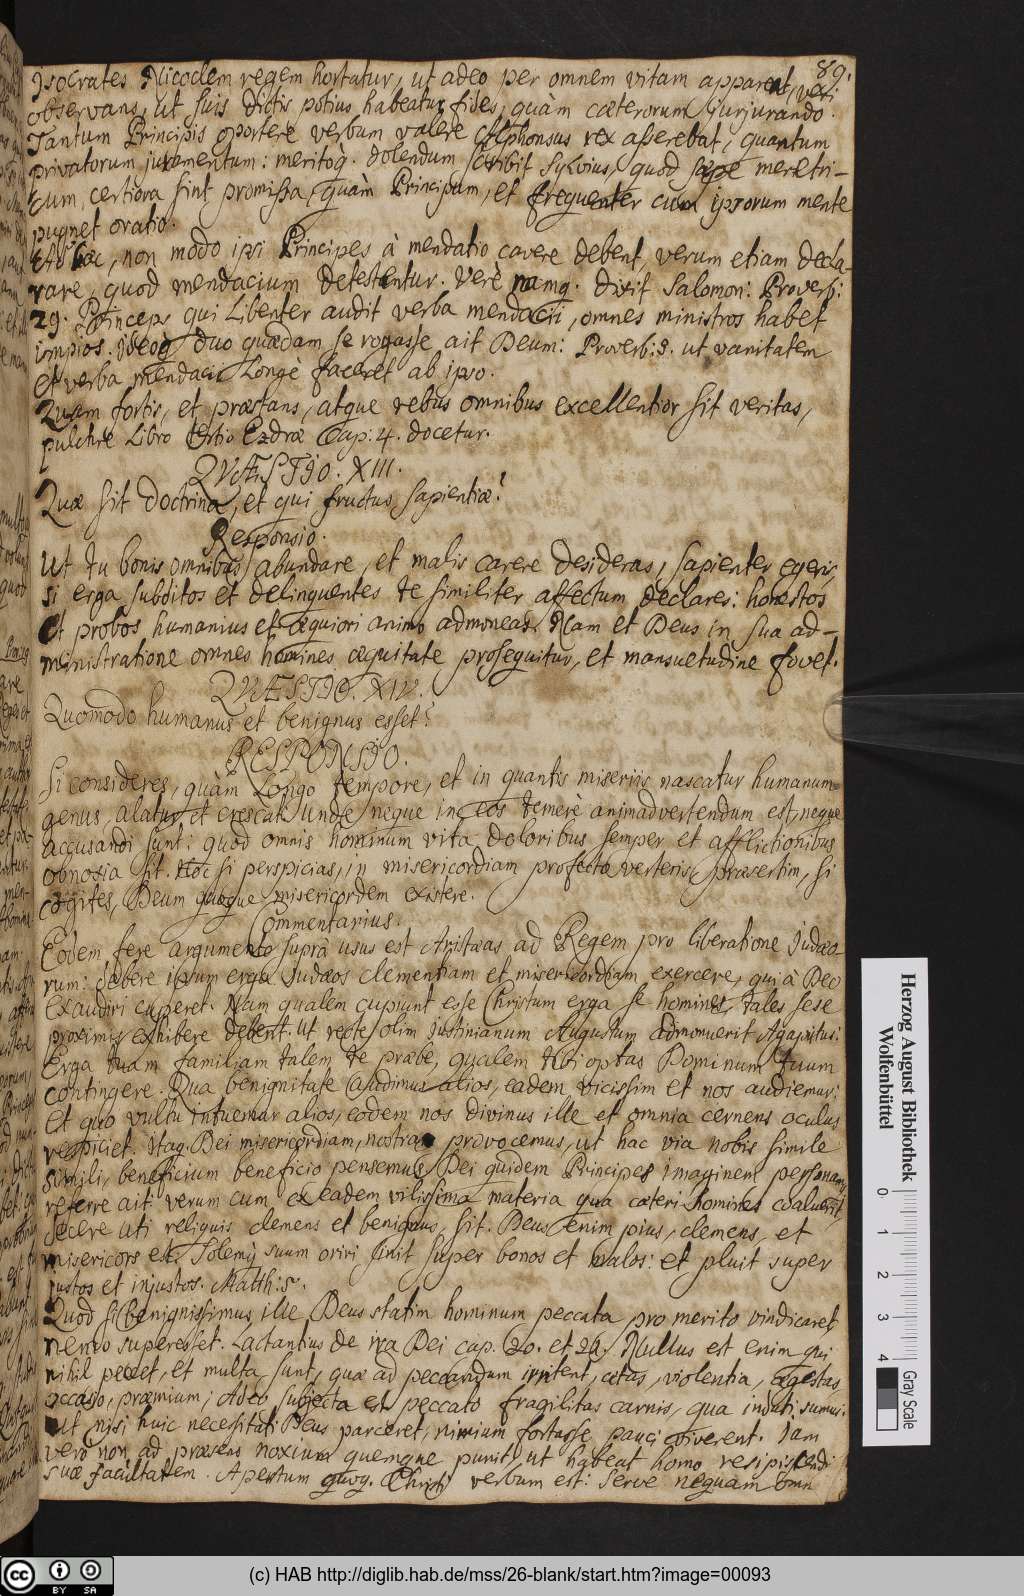 89.
Isocrates Nicoclem regem hortatur, ut adeo per omnem vitam appareat, veri
observans, ut suis dictis potius habeatur fides, quàm cæterorum jurjurando.
Tantum Principis oportere verbum valere Alphonsus rex asserebat, quantum
privatorum juramentum: meritoq. dolendum scribit Sylvius, quod sæpe meretri-
cum, certiora sint promissa, quàm Principum, et frequenter cum ipsorum mente
pugnet oratio.
Ad hæc, non modo ipsi Principes à mendatio cavere debent, verum etiam decla-
rare, quod mendacium detestentur. Verè namq. dixit Salomon: Proverb:
29. Princeps qui libenter audit verba mendacii, omnes ministros habet
impios. Ideoq duo quædam se rogasse ait Deum: Proverb: ut vanitatem
et verba mendacii longè faceret ab ipso.
Quam fortis, et præstans, atque rebus omnibus excellentior sit veritas,
pulchre Libro tertio Esdræ Cap: 4. docetur.
QVÆSTIO. XIII.
Quæ sit doctrina, et qui fructus sapientiæ?
Responsio.
Ut tu bonis omnibus abundare, et malis carere desideras, sapienter egeris,
si erga subditos et delinquentes te similiter affectum declares: honestos
et probos humanius et æquiori animo admoneas. Nam et Deus in sua ad-
ministratione omnes homines æquitate prosequitur, et mansuetudine fovet.
QVÆSTIO. XIV.
Quomodo humanus et benignus esset?
RESPONSIO.
Si consideres, quàm longo tempore, et in quantis miseriis nascatur humanum
genus, alatur et crescat. Unde neque in eos temerè animadvertendum est, neque
accusandi sunt: quod omnis hominum vita doloribus semper et afflictionibus
obnoxia sit. Hoc si perspicias, in misericordiam profecto verteris, præsertim, si
cogites, Deum quoque misericordem existere.
Commentarius.
Eodem fere argumento suprà usus est Aristæas ad Regem pro liberatione Judæo-
rum: debere ipsum erga Judæos clementiam et misericordiam exercere, qui à Deo
exaudiri cuperet. Nam qualem cupiunt esse Christum erga se homines, tales sese
proximis exhibere debent. Ut recte olim Justinianum Augustum admonuerit Agapitus:
Erga tuam familiam talem te præbe, qualem tibi optas Dominum tuum
contingere. Qua benignitate audimus alios, eadem vicissim et nos audiemur:
Et quo vultu intuemur alios, eodem nos divinus ille et omnia cernens oculus
respiciet. Itaq. Dei misericordiam, nostra provocemus, ut hac via nobis simile
simili, beneficium beneficio pensemus. Dei quidem Principes imaginem personamq
referre ait: verum cum ex eadem vilissima materia qua cæteri homines coaluerit,
decere uti reliquis clemens et benignus sit. Deus enim pius, clemens, et
misericors est. Solemq suum oriri sinit super bonos et malos: et pluit super
justos et injustos. Matth: 5.
Quod si benignissimus ille Deus statim hominum peccata pro merito vindicaret
nemo superesset. Lactantius de ira Dei cap. 20. et 21. Nullus est enim qui
nihil peccet, et multa sunt, quæ ad peccandum irritent, ætas, violentia, egestas,
occasio, præmium: Adeo subjecta est peccato fragilitas carnis, qua induti sumus:
ut nisi huic necessitati Deus parceret, nimium fortasse pauci viverent. Jam
vero non ad præsens noxium quemque punit, ut habeat homo resipiscendi
suæ facultatem. Apertum quoq. Christi verbum est: Serve nequam omn
Herzog August Bibliothek
Wolfenbüttel
0 1 2 3 4
Gray Scale
(c) HAB http://diglib.hab.de/mss/26-blank/start.htm?image=00093
cc BY SA